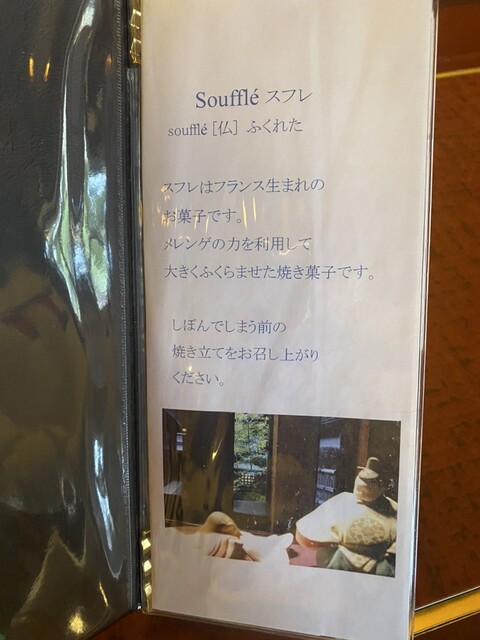 Soufflé スフレ
soufflé [仏] ふくれた
スフレはフランス生まれの
お菓子です。
メレンゲの力を利用して
大きくふくらませた焼き菓子です。
しぼんでしまう前の
焼き立てをお召し上がり
ください。